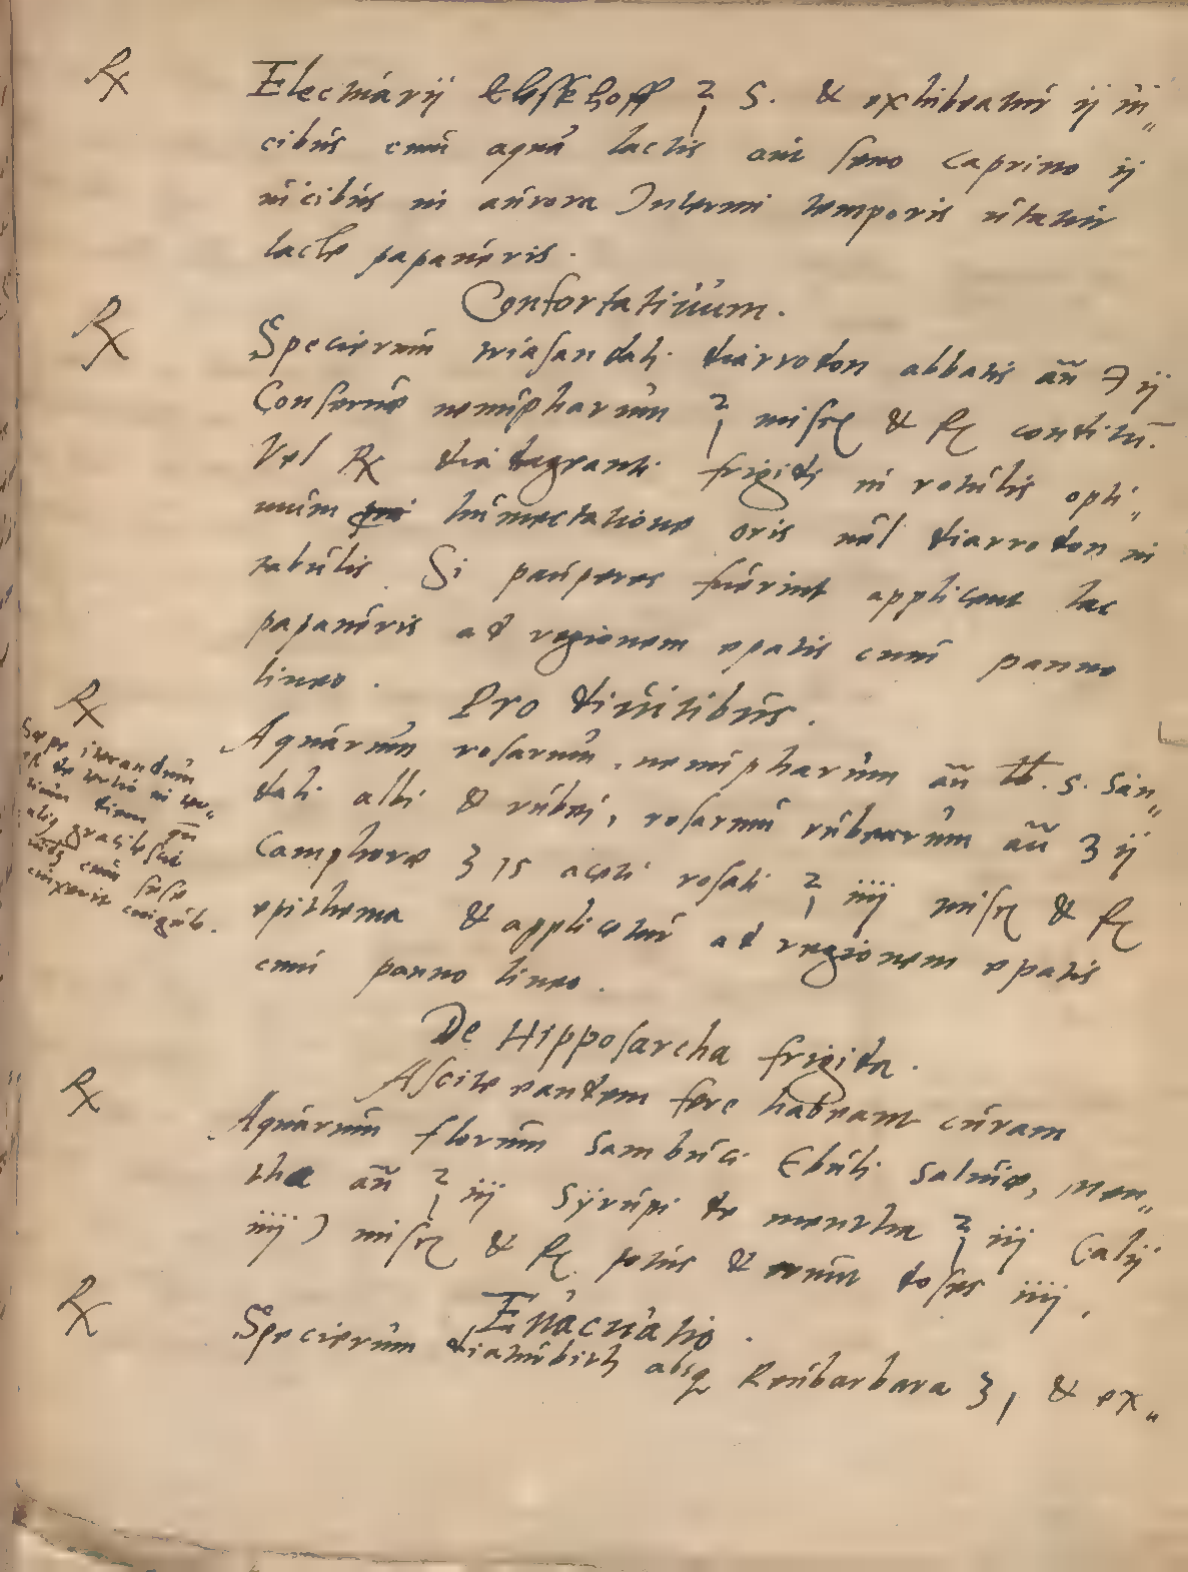 ℞ Electuarij Elesckhoff ℥ s. & exhibeatur ij ui„
cibus cum aqua lactis aut sero caprino ij
uicibus in aurora Interim temporis utatur
lacte papaueris.
Confortatiuum.
℞ Specierum triasandali diarrodon abbatis añ Ʒ ij
Conseruæ nenupharum ℥ j misce & f. conditū.
Vel ℞ diadagranti frigidi in rotulis opti„
mum pro humectatione oris uel diarrodon in
tabulis. Si pauperes fuerint applicent lac
papaueris ad regionem epatis cum panno
lineo.
Pro diuitibus.
℞ Aquarum rosarum, nenupharum añ lb. s. San„
dali albi & rubri, rosarum rubearum añ ʒ ij
Camphoræ ʒ js aceti rosati ℥ iiij misce & f.
epithema & applicetur ad regionem epatis
cum panno lineo.
Sæpe iterandum
gracilescit
cum sese
De Hipposarcha frigida.
Ascite eandem fere habeant curam
℞ Aquarum florum Sambuci Ebuli Saluiæ, Men„
tha añ ℥ iij Syrupi de mentha ℥ iij Calij
iiij ) misce & f. potus & erunt doses iiij.
Euacuatio.
℞ Specierum diaturbith absq Reubarbara ʒ j & ex„